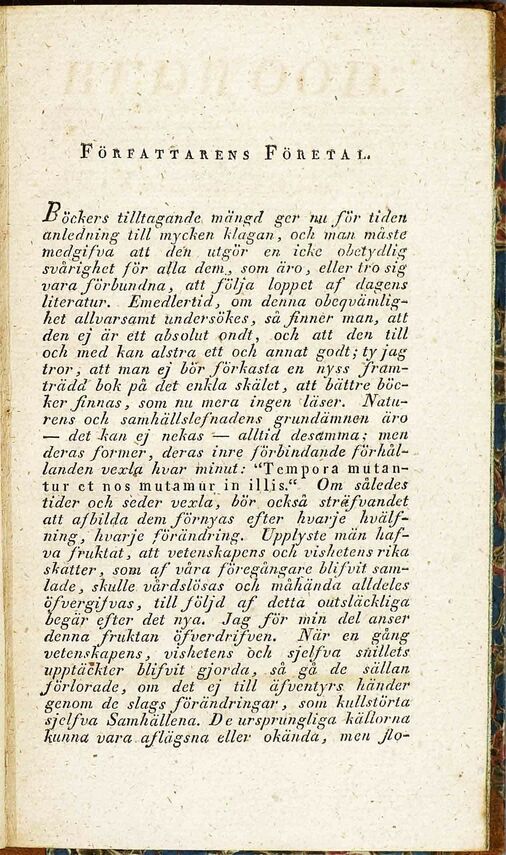 FÖRFATTARENS FÖRETAL.
Böckers tilltagande mängd ger nu för tiden
anledning till mycken klagan, och man måste
medgifva att den utgör en icke obetydlig
svårighet för alla dem, som äro, eller tro sig
vara förbundna, att följa loppet af dagens
literatur. Emedlertid, om denna obeqvämlig-
het allvarsamt undersökes, så finner man, att
den ej är ett absolut ondt, och att den till
och med kan alstra ett och annat godt; ty jag
tror, att man ej bör förkasta en nyss fram-
trädd bok på det enkla skälet, att bättre böc-
ker finnas, som nu mera ingen läser. Natu-
rens och samhällslefnadens grundämnen äro
— det kan ej nekas — alltid desamma; men
deras former, deras inre förbindande förhål-
landen vexla hvar minut: “Tempora mutan-
tur et nos mutamur in illis.“ Om således
tider och seder vexla, bör också sträfvandet
att afbilda dem förnyas efter hvarje hvälf-
ning, hvarje förändring. Upplyste män haf-
va fruktat, att vetenskapens och vishetens rika
skatter, som af våra föregångare blifvit sam-
lade, skulle vårdslösas och måhända alldeles
öfvergifvas, till följd af detta outsläckliga
begär efter det nya. Jag för min del anser
denna fruktan öfverdrifven. När en gång
vetenskapens, vishetens och sjelfva snillets
upptäckter blifvit gjorda, så gå de sällan
förlorade, om det ej till äfventyrs händer
genom de slags förändringar, som kullstörta
sjelfva Samhällena. De ursprungliga källorna
kunna vara aflägsna eller okända, men flo-